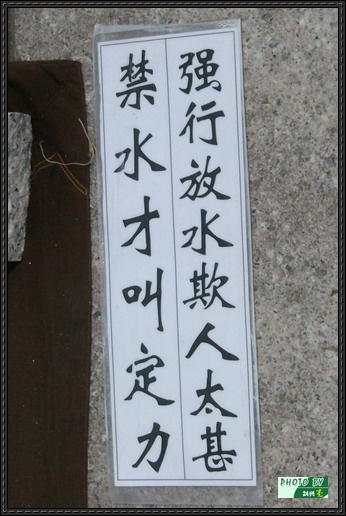 强行放水欺人太甚
禁水才叫定力
PHOTO BY